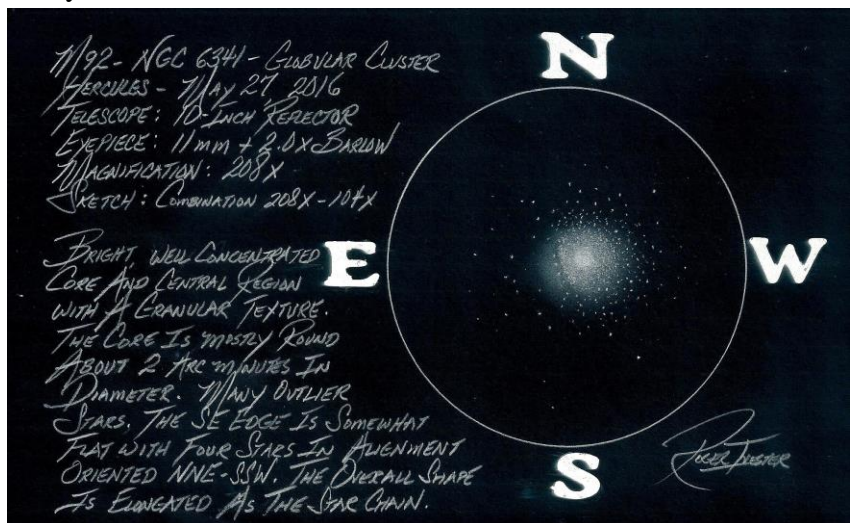 M92 - NGC 6341 - GLOBULAR CLUSTER
HERCULES - MAY 27 2016
TELESCOPE: 10-INCH REFLECTOR
EYEPIECE: 11mm + 2.0X BARLOW
MAGNIFICATION: 208X
SKETCH: COMBINATION 208X-104X
BRIGHT, WELL CONCENTRATED
CORE AND CENTRAL REGION
WITH A GRANULAR TEXTURE.
THE CORE IS MOSTLY ROUND
ABOUT 2 ARC MINUTES IN
DIAMETER. MANY OUTLIER
STARS. THE SE EDGE IS SOMEWHAT
FLAT WITH FOUR STARS IN ALIENMENT
ORIENTED NNE-SSW. THE OVERALL SHAPE
IS ELONGATED AS THE STAR CHAIN.
N
E
W
S
ROGER